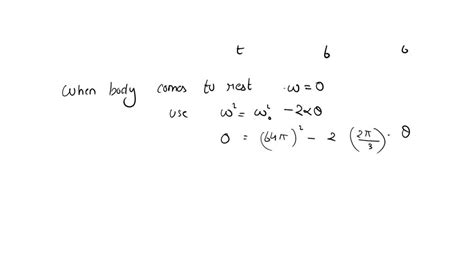 t 6 6
When body comes to rest . ω = 0
use ω² = ω₀² - 2αθ
0 = (64π)² - 2 (2π/3) . θ